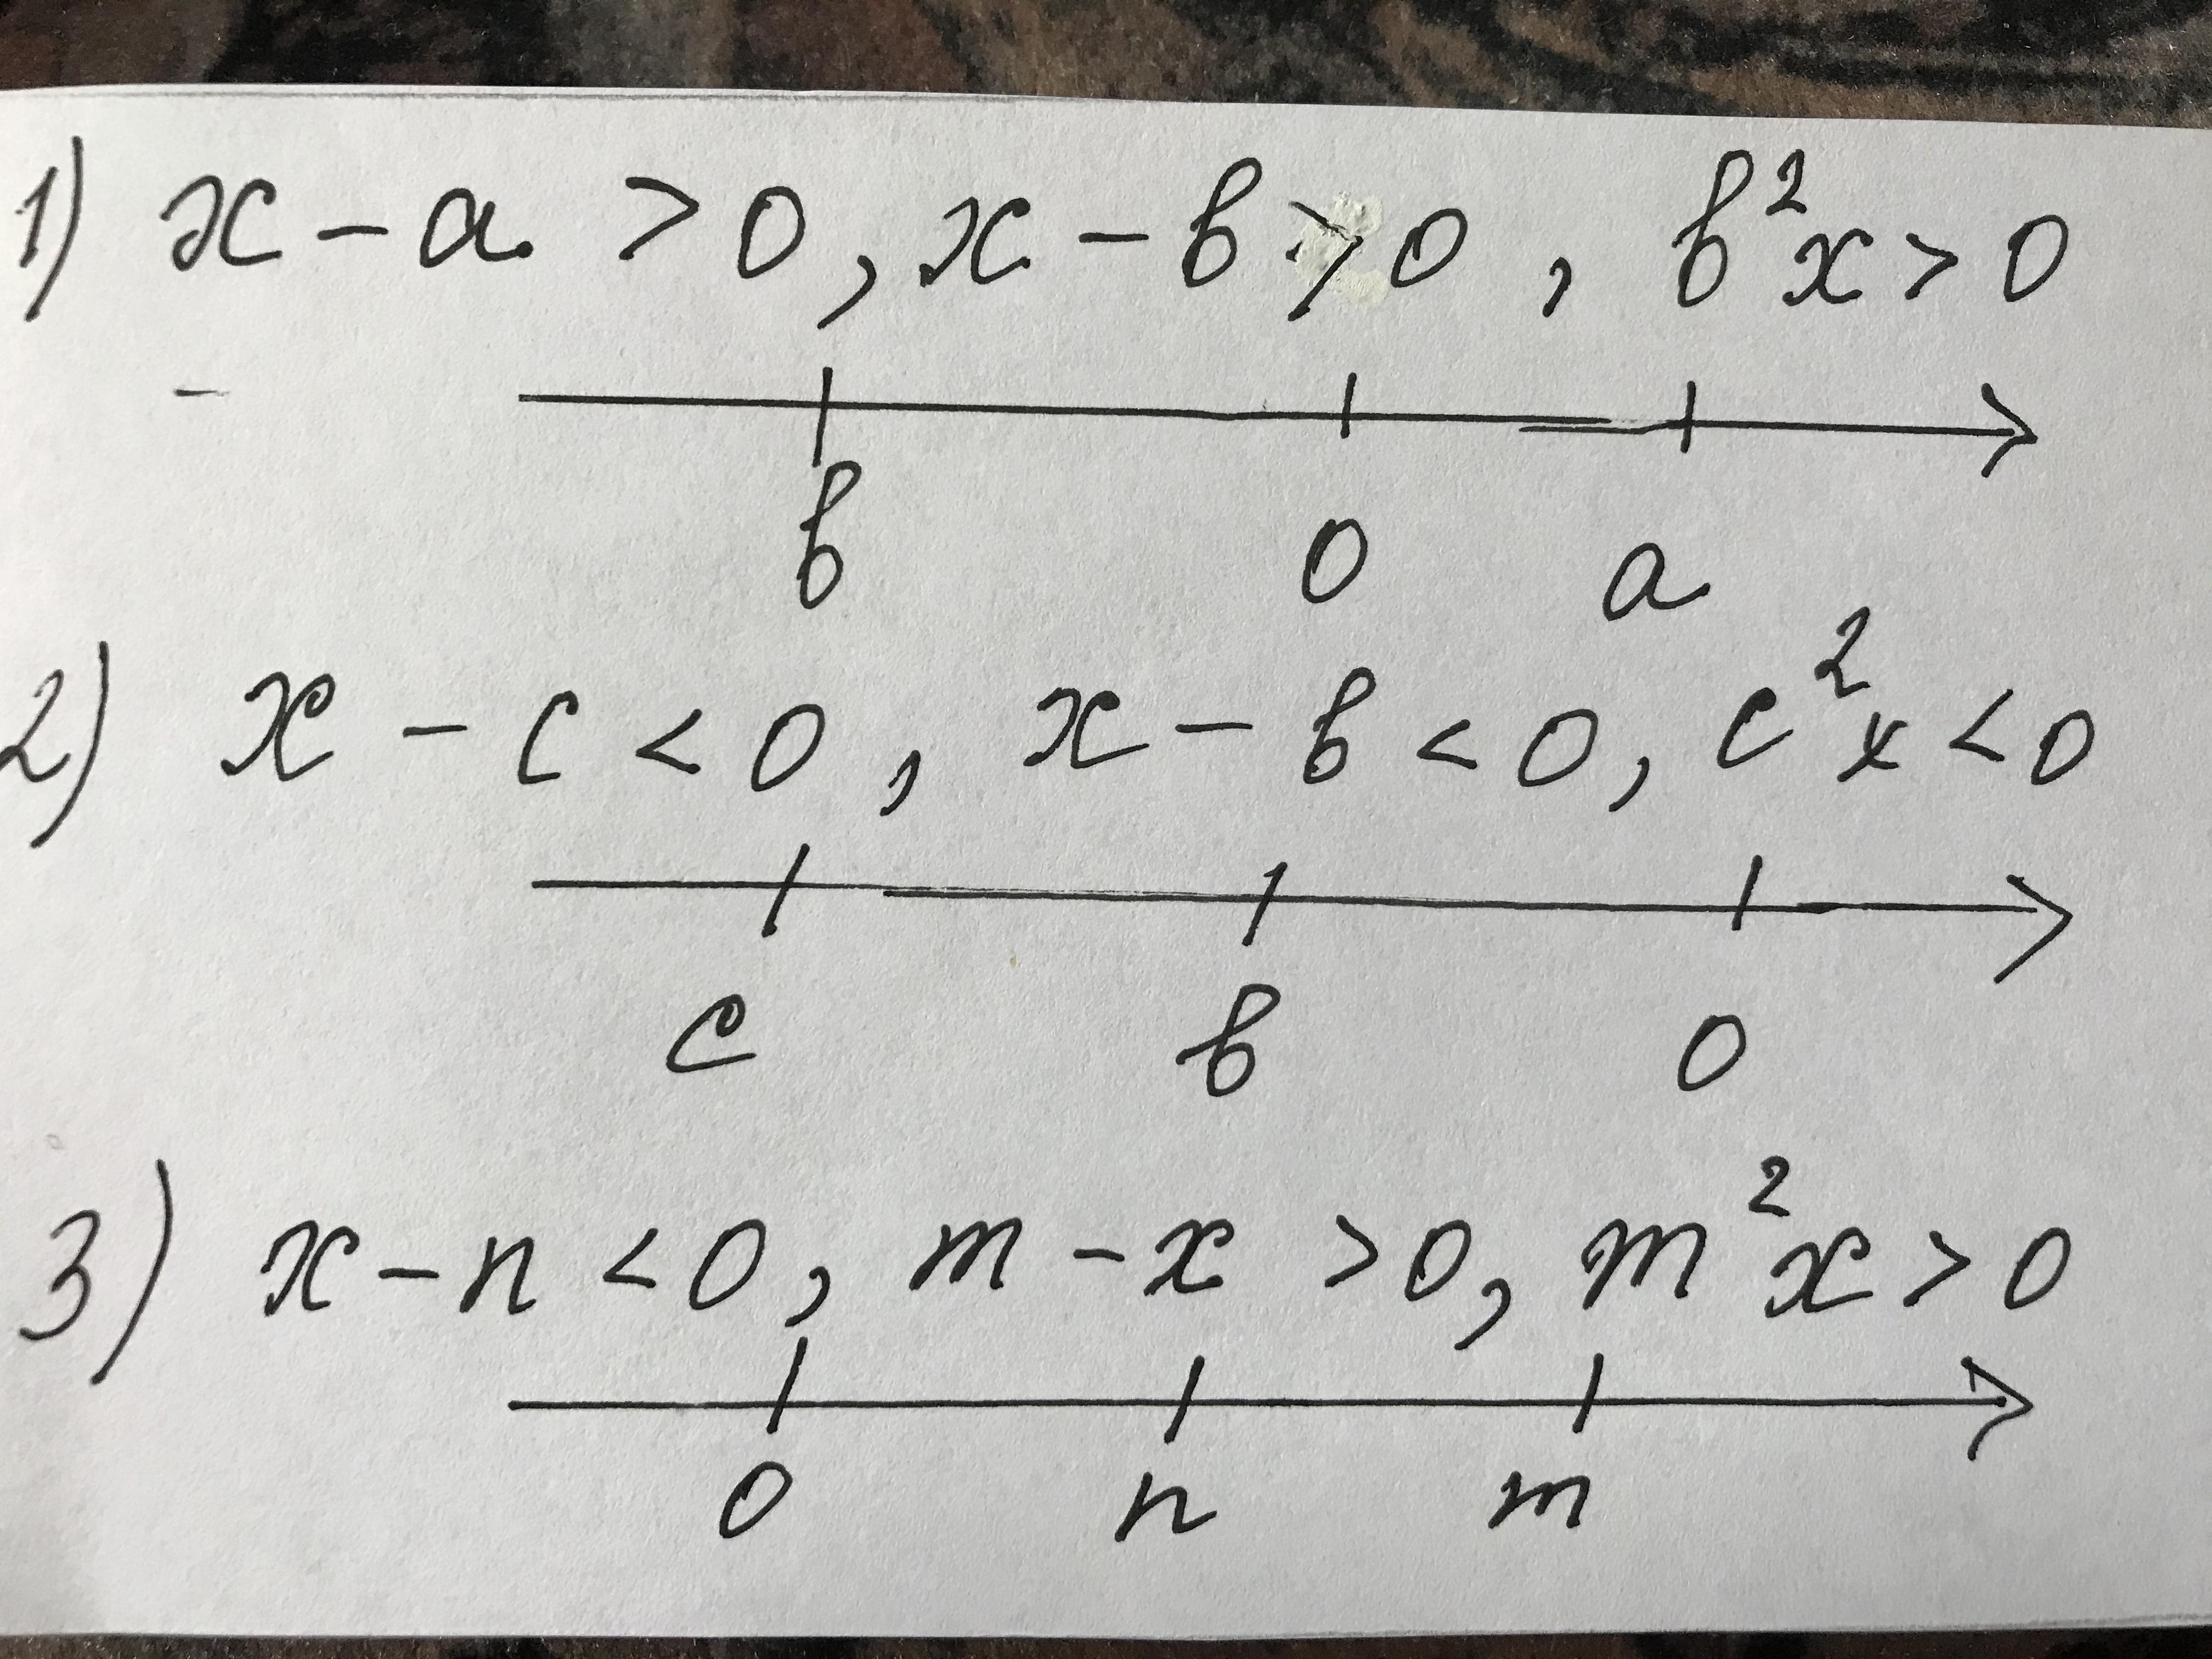 1) x - a > 0, x - b > 0, b²x > 0
b 0 a
2) x - c < 0, x - b < 0, c²x < 0
c b 0
3) x - n < 0, m - x > 0, m²x > 0
0 n m